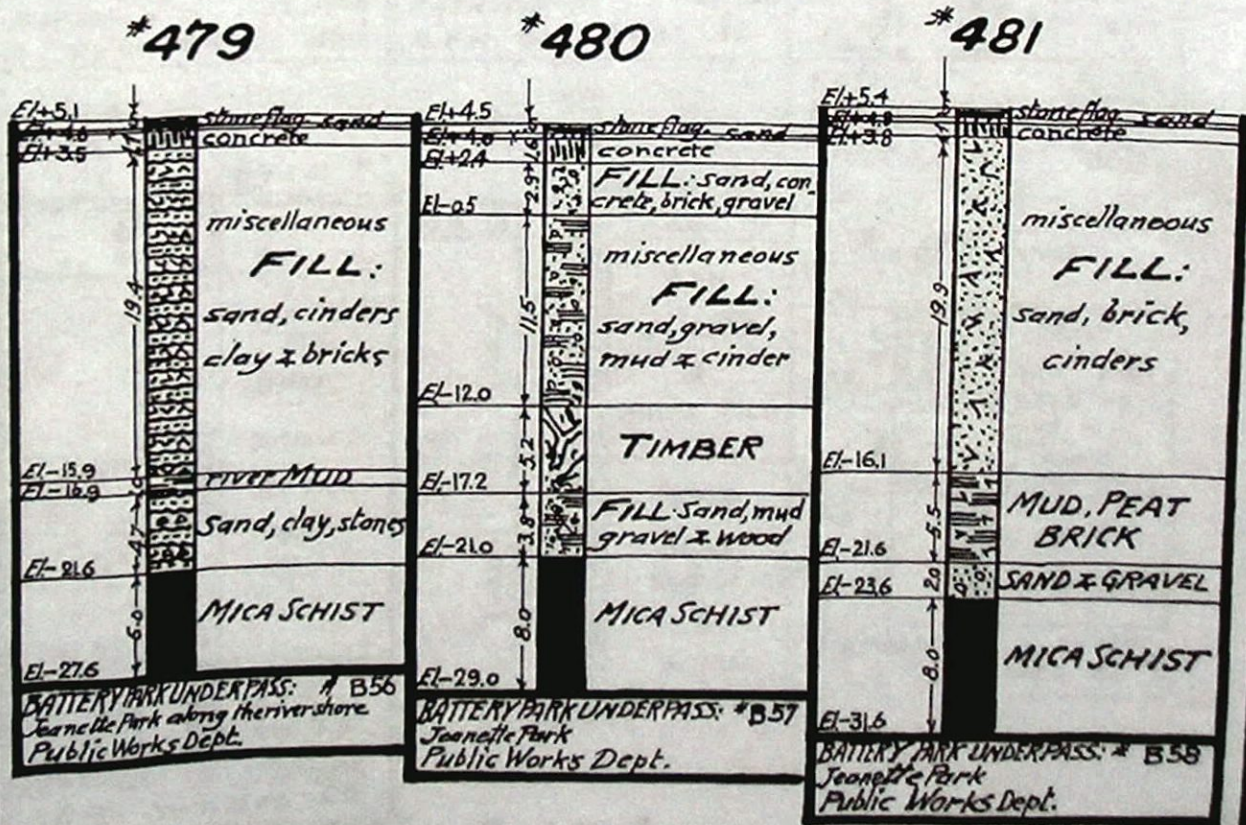 #479
El.+5.1
El.+4.6
El.+3.5
stone flag. sand
concrete
1.1
miscellaneous
FILL:
sand, cinders
clay & bricks
19.4
El.-15.9
El.-16.9
river MUD
1.0
Sand, clay, stones
4.7
El.-21.6
MICA SCHIST
6.0
El.-27.6
BATTERY PARK UNDERPASS: # B56
Jeanette Park along the river shore
Public Works Dept.
#480
El.+4.5
El.+4.0
El.+2.4
stone flag. sand
concrete
1.6
FILL: sand, con
crete, brick, gravel
2.9
El.-0.5
miscellaneous
FILL:
sand, gravel,
mud & cinder
11.5
El.-12.0
TIMBER
5.2
El.-17.2
FILL: Sand, mud
gravel & wood
3.8
El.-21.0
MICA SCHIST
8.0
El.-29.0
BATTERY PARK UNDERPASS: #B57
Jeanette Park
Public Works Dept.
#481
El.+5.4
El.+4.9
El.+3.8
stone flag. sand
concrete
1.1
miscellaneous
FILL:
sand, brick,
cinders
19.9
El.-16.1
MUD, PEAT
BRICK
5.5
El.-21.6
SAND & GRAVEL
2.0
El.-23.6
MICA SCHIST
8.0
El.-31.6
BATTERY PARK UNDERPASS: # B58
Jeanette Park
Public Works Dept.